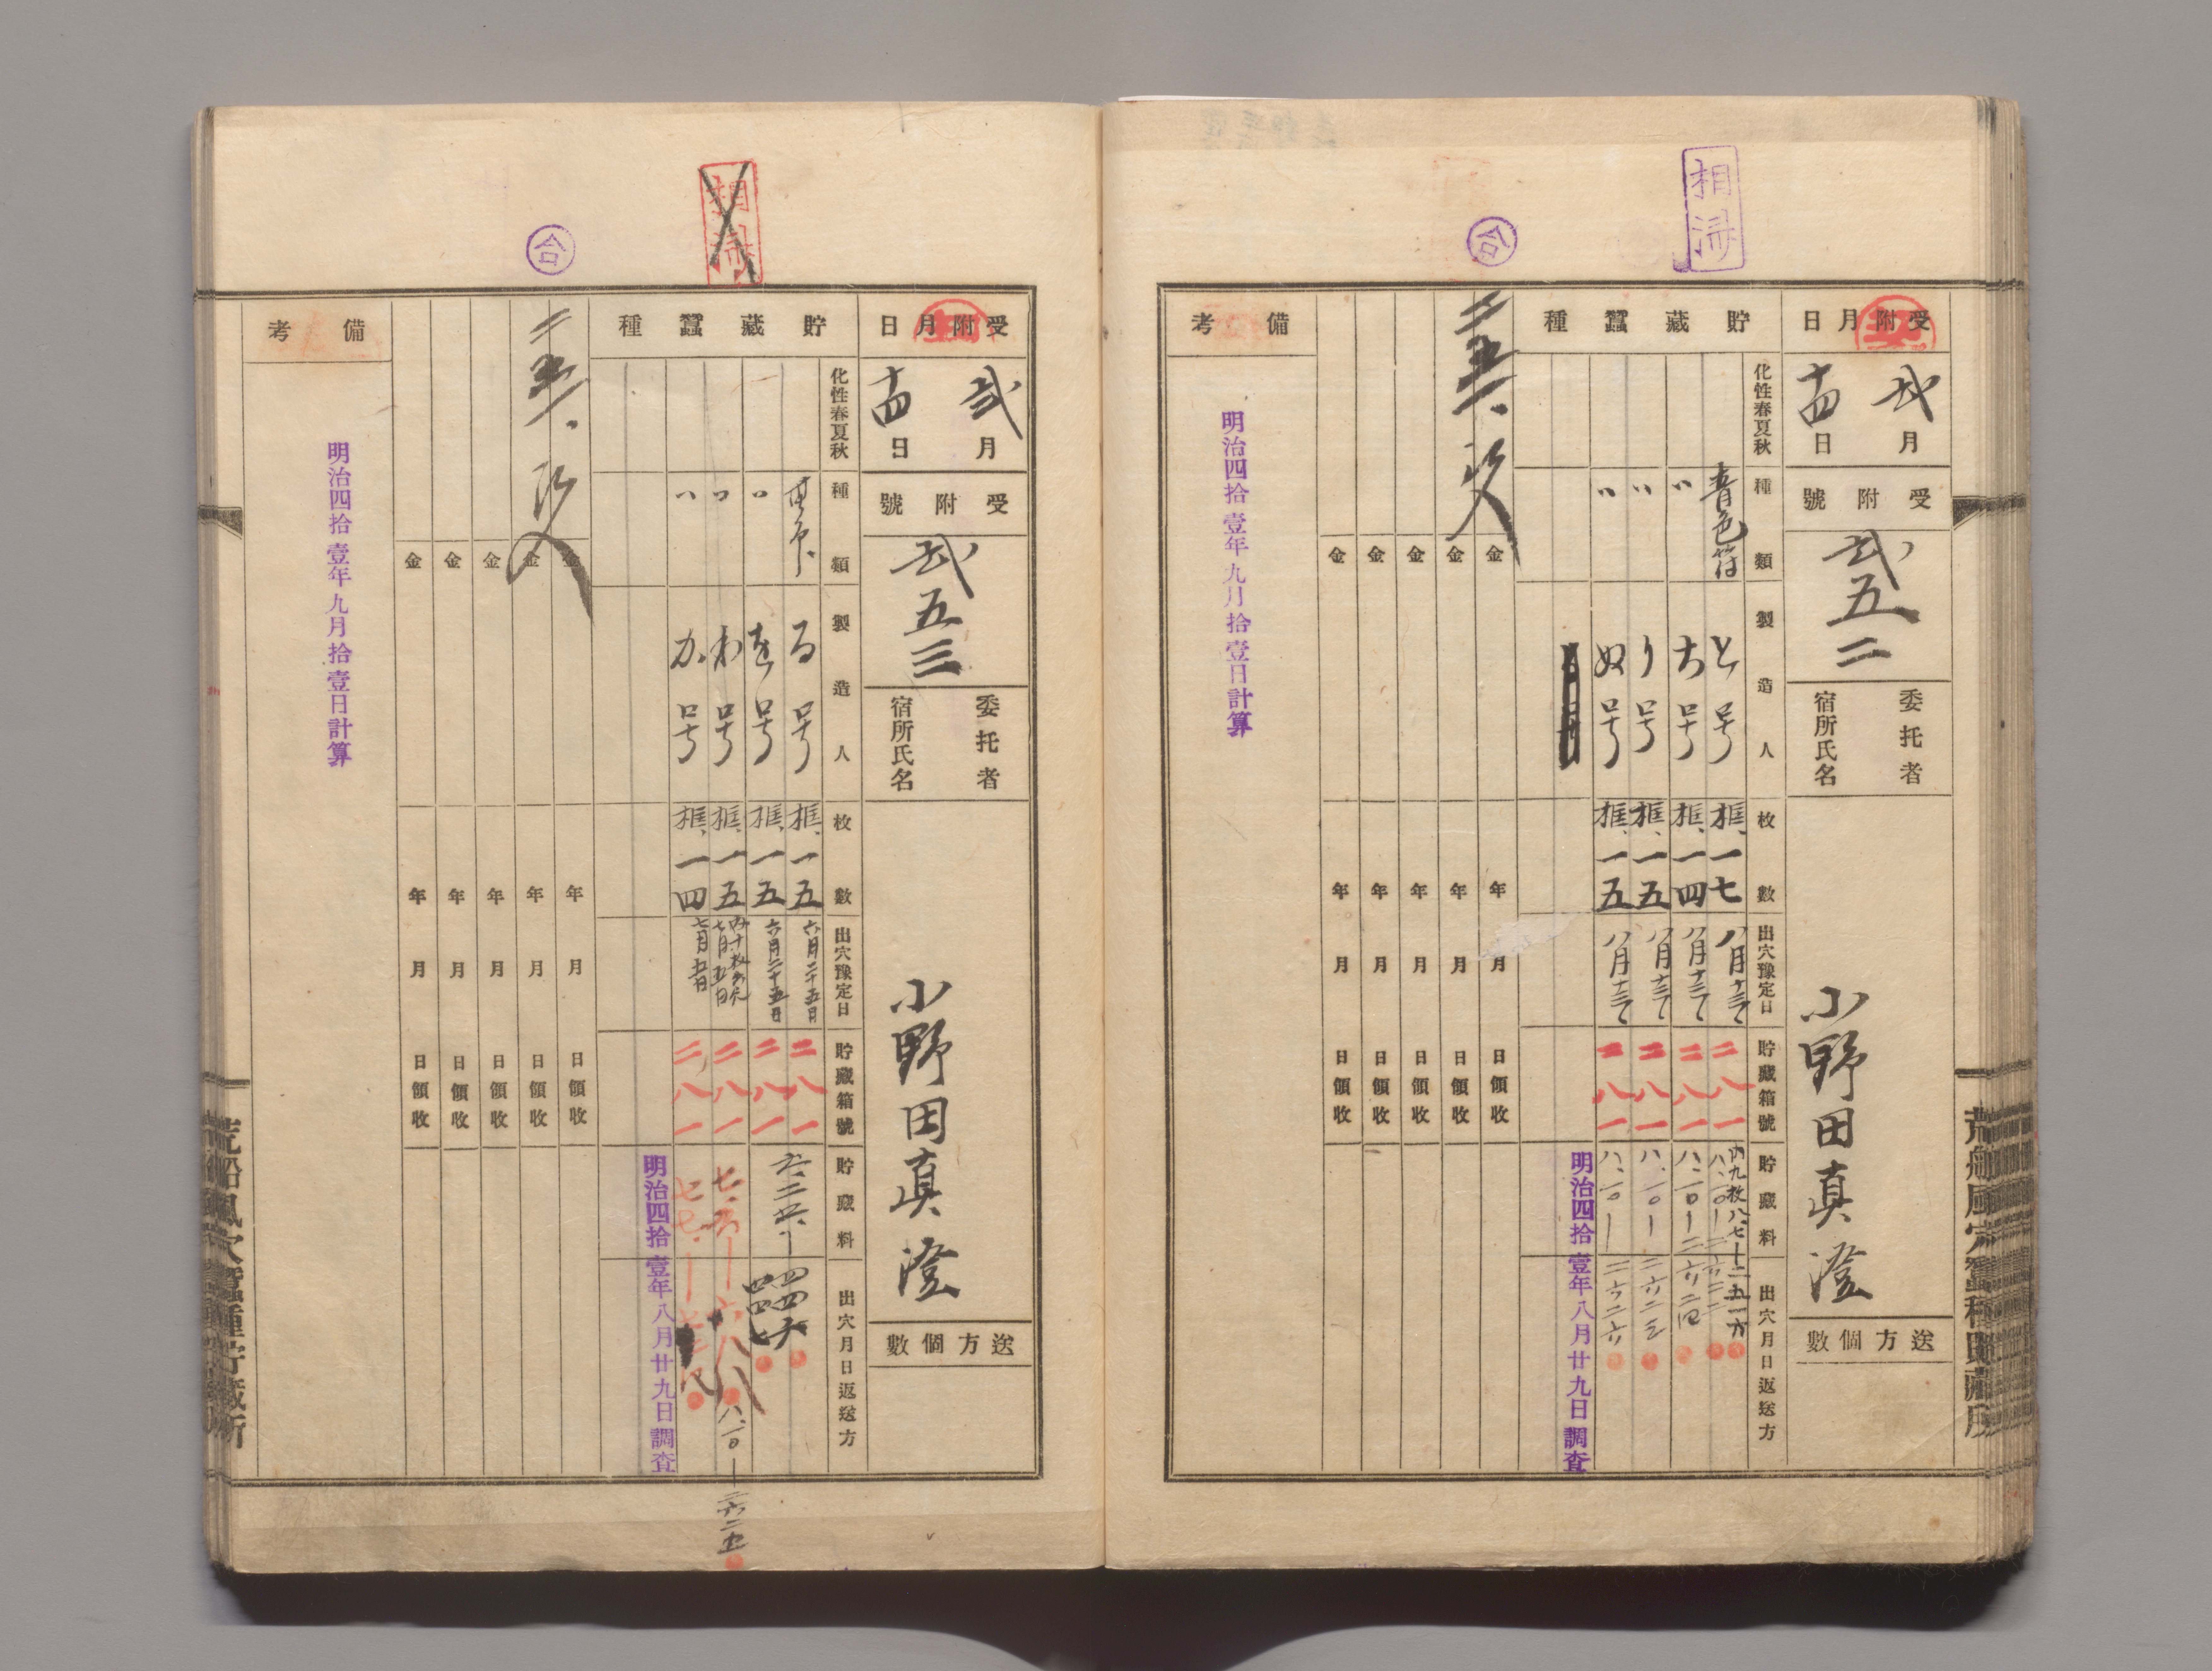 相済
合
受附月日
弐月
十四日
受附號
弐五二
委托者
宿所氏名
小野田真澄
送方個數
貯藏蠶種
化性春夏秋
種類
製造人
枚數
出穴豫定日
貯藏箱號
貯藏料
出穴月日返送方
青色符 と号 框、一七 八月十三 二八一
〃 ち号 框、一四 八月十三 二八一
〃 り号 框、一五 八月十三 二八一
〃 ぬ号 框、一五 八月十三 二八一
内九枚八、七
明治四拾壹年八月廿九日調査
金 年月日領收
金 年月日領收
金 年月日領收
金 年月日領收
金 年月日領收
備考
明治四拾壹年九月拾壹日計算
相済
合
受附月日
弐月
十四日
受附號
弐五三
委托者
宿所氏名
小野田真澄
送方個數
貯藏蠶種
化性春夏秋
種類
製造人
枚數
出穴豫定日
貯藏箱號
貯藏料
出穴月日返送方
る号 框、一五 六月二十五日 二八一
〃 を号 框、一五 六月二十五日 二八一
〃 わ号 框、一五 七月五日 二八一
〃 か号 框、一四 七月五日 二八一
明治四拾壹年八月廿九日調査
金 年月日領收
金 年月日領收
金 年月日領收
金 年月日領收
金 年月日領收
備考
明治四拾壹年九月拾壹日計算
荒船風穴蠶種貯藏所